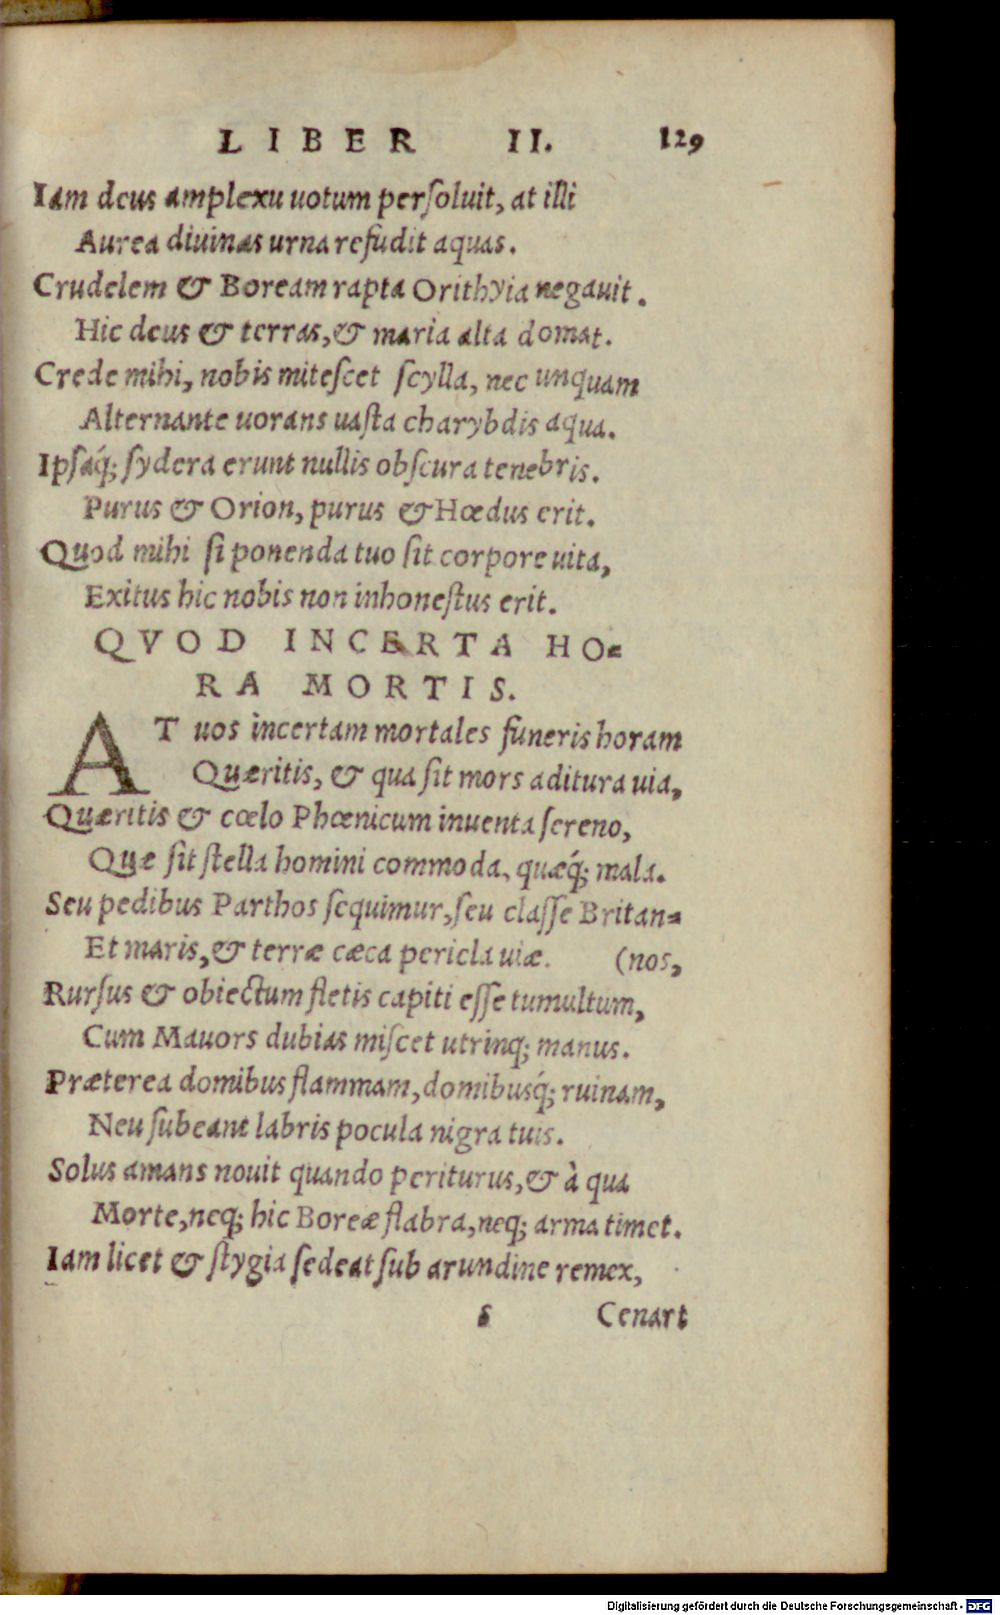 LIBER II. 129
Iam deus amplexu uotum perſoluit, at illi
Aurea diuinas urna refudit aquas.
Crudelem & Boream rapta Orithyia negauit.
Hic deus & terras, & maria alta domat.
Crede mihi, nobis miteſcet ſcylla, nec unquam
Alternante uorans uaſta charybdis aqua.
Ipſaq́; ſydera erunt nullis obſcura tenebris.
Purus & Orion, purus & Hœdus erit.
Quod mihi ſi ponenda tuo ſit corpore uita,
Exitus hic nobis non inhoneſtus erit.
QVOD INCERTA HO-
RA MORTIS.
AT uos incertam mortales funeris horam
Quæritis, & qua ſit mors aditura uia,
Quæritis & cœlo Phœnicum inuenta ſereno,
Quæ ſit ſtella homini commoda, quæq́; mala.
Seu pedibus Parthos ſequimur, ſeu claſſe Britan-
Et maris, & terræ cæca pericla uiæ. (nos,
Rurſus & obiectum fletis capiti eſſe tumultum,
Cum Mauors dubias miſcet utrinq; manus.
Præterea domibus flammam, domibusq́; ruinam,
Neu ſubeant labris pocula nigra tuis.
Solus amans nouit quando periturus, & à qua
Morte, neq; hic Boreæ flabra, neq; arma timet.
Iam licet & ſtygia ſedeat ſub arundine remex,
s Cenart
Digitalisierung gefördert durch die Deutsche Forschungsgemeinschaft - DFG